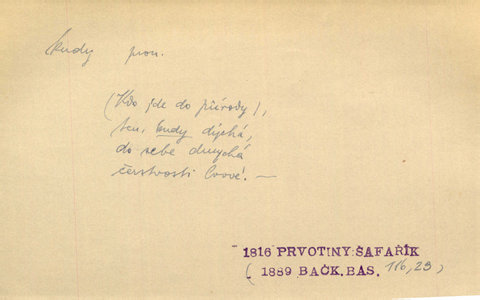 kudy pron.
(Kdo jde do přírody),
ten, kudy dýchá,
do sebe dmychá
čerstvosti
1816 PRVOTINY:ŠAFAŘÍK
( 1889 BAČK.BÁS. 116, 29 )